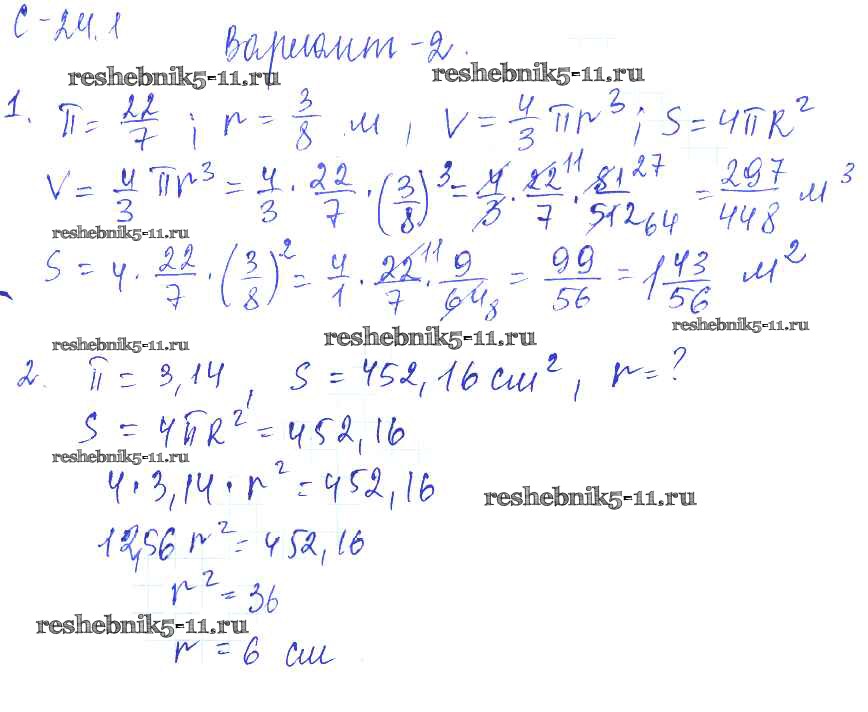 С-24.1
Вариант-2.
reshebnik5-11.ru
reshebnik5-11.ru
1. π = 22/7 ; r = 3/8 м , V = 4/3 πr³ ; S = 4πR²
V = 4/3 πr³ = 4/3 · 22/7 · (3/8)³ = 4/3 · 22/7 · 81/512 11 27 64 = 297/448 м³
reshebnik5-11.ru
S = 4 · 22/7 · (3/8)² = 4/1 · 22/7 · 9/64 11 8 = 99/56 = 1 43/56 м²
reshebnik5-11.ru
reshebnik5-11.ru
reshebnik5-11.ru
2. π = 3,14 , S = 452,16 см² , r = ?
S = 4πR² = 452,16
reshebnik5-11.ru
4 · 3,14 · r² = 452,16
reshebnik5-11.ru
12,56 r² = 452,16
r² = 36
reshebnik5-11.ru
r = 6 см